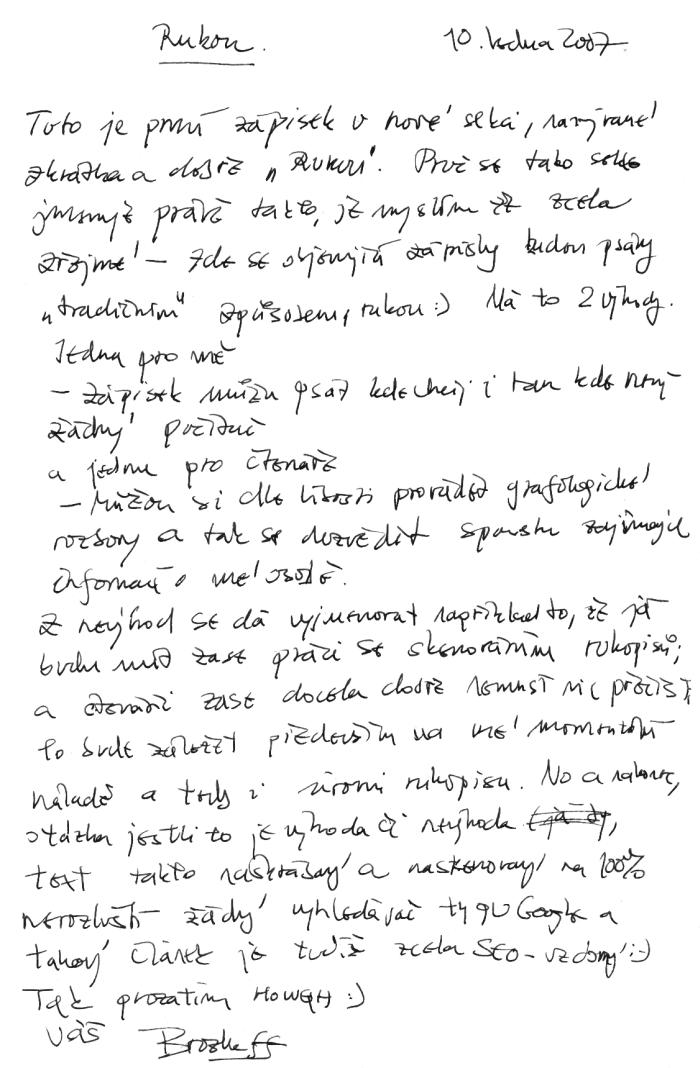 Rukou. 10. ledna 2007
Toto je první zápisek v nové sekci, nazývané
zkrátka a dobře „Rukou“. Proč se tato sekce
jmenuje právě takto, je myslím zcela
zřejmé – zde se objevující zápisky budou psány
„tradičním“ způsobem, rukou :) Má to 2 výhody.
Jedna pro mě
– zápisek můžu psát kde chci, i tam kde není
žádný počítač
a jednu pro čtenáře
– můžou si dle libosti provádět grafologické
rozbory a tak se dozvědět spoustu zajímavých
informací o mé osobě.
Z nevýhod se dá vyjmenovat například to, že já
budu mít zase práci se skenováním rukopisů,
a čtenáři zase docela dobře nemusí nic přečíst,
to bude záležet především na mé momentální
náladě a tedy i úrovni rukopisu. No a nakonec,
otázka jestli to je výhoda či nevýhoda,
text takto naškrábaný a naskenovaný na 100%
nerozluští žádný vyhledávač typu Google a
takový článek je tudíž zcela SEO-vzdorný :-)
Tak prozatím HOWGH :)
Váš Brozkeff